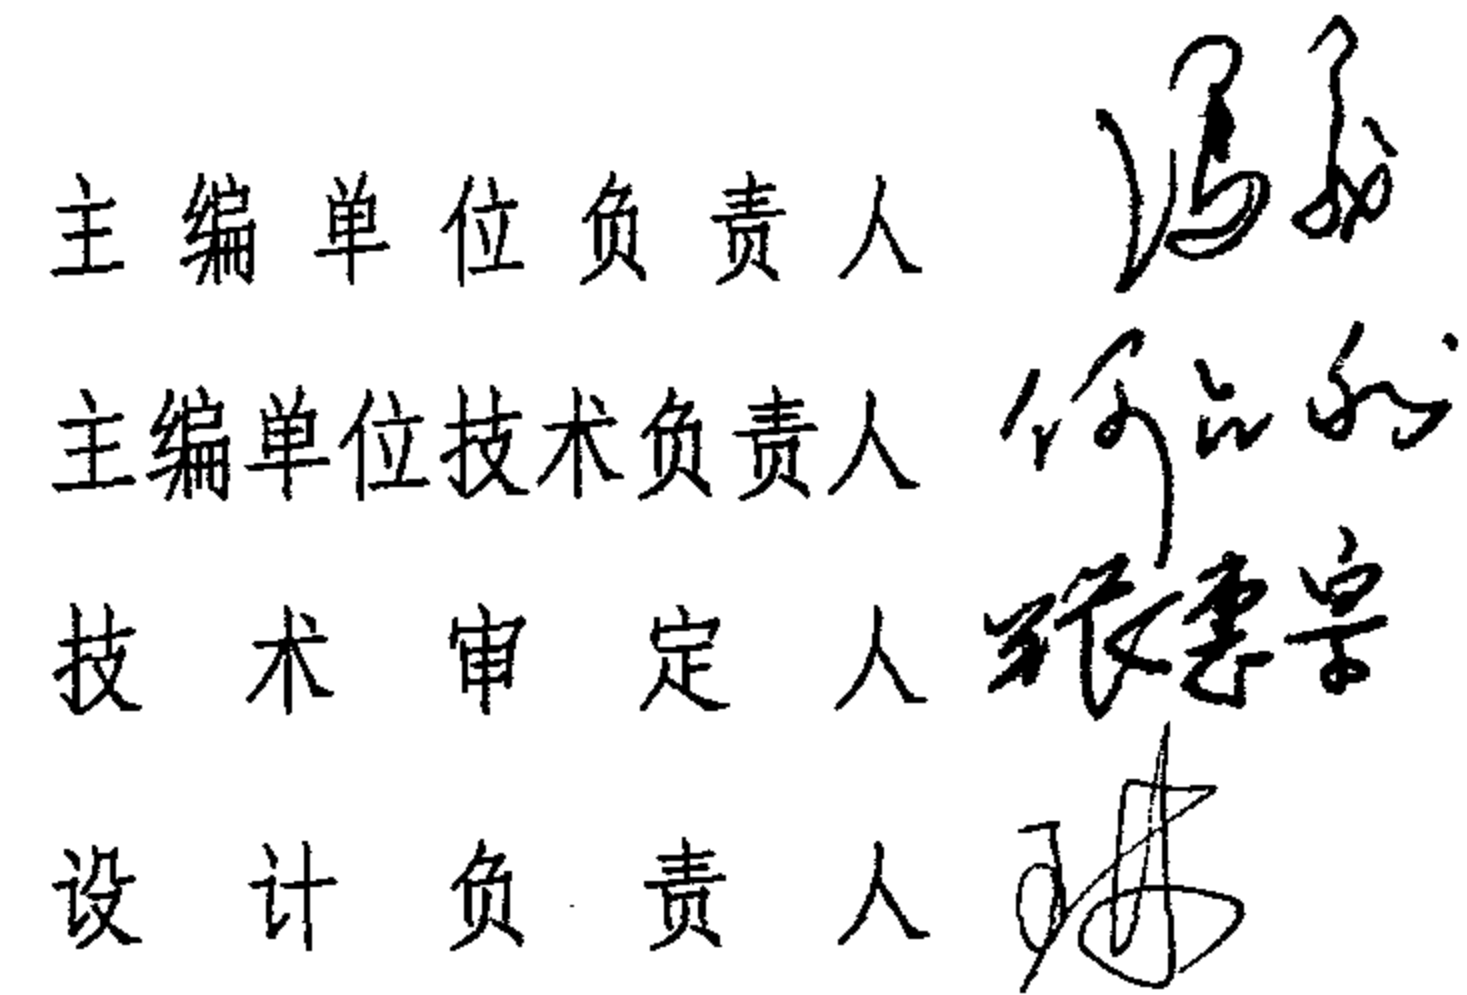 主编单位负责人
主编单位技术负责人 何
技术审定人 张惠
设计负责人